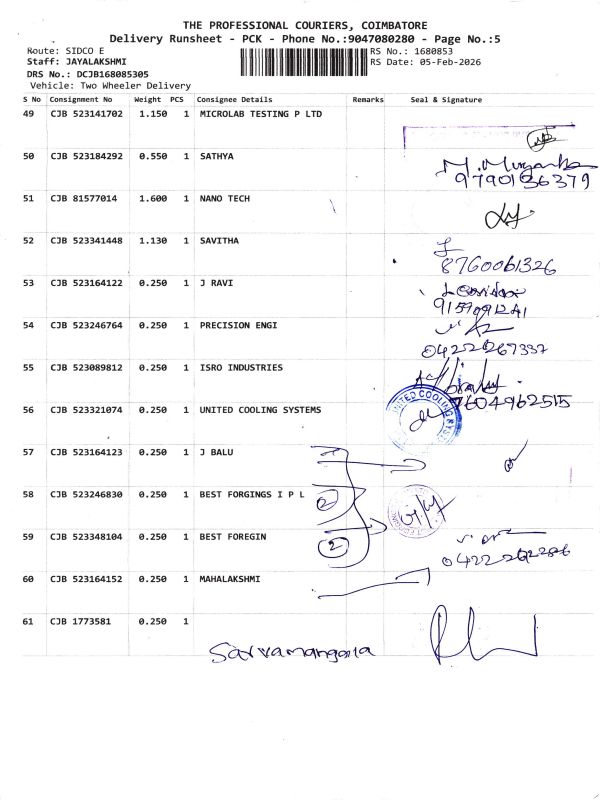 THE PROFESSIONAL COURIERS, COIMBATORE
Delivery Runsheet - PCK - Phone No.:9047080280 - Page No.:5
Route: SIDCO E
RS No.: 1680853
Staff: JAYALAKSHMI
RS Date: 05-Feb-2026
DRS No.: DCJB168085305
Vehicle: Two Wheeler Delivery
S No Consignment No Weight PCS Consignee Details Remarks Seal & Signature
49 CJB 523141702 1.150 1 MICROLAB TESTING P LTD
50 CJB 523184292 0.550 1 SATHYA
9790136379
51 CJB 81577014 1.600 1 NANO TECH
52 CJB 523341448 1.130 1 SAVITHA
8760061326
53 CJB 523164122 0.250 1 J RAVI
54 CJB 523246764 0.250 1 PRECISION ENGI
55 CJB 523089812 0.250 1 ISRO INDUSTRIES
7604962515
56 CJB 523321074 0.250 1 UNITED COOLING SYSTEMS
UNITED COOLING SYS
57 CJB 523164123 0.250 1 J BALU
58 CJB 523246830 0.250 1 BEST FORGINGS I P L 2
59 CJB 523348104 0.250 1 BEST FOREGIN 2
60 CJB 523164152 0.250 1 MAHALAKSHMI
61 CJB 1773581 0.250 1
Sarvamangala